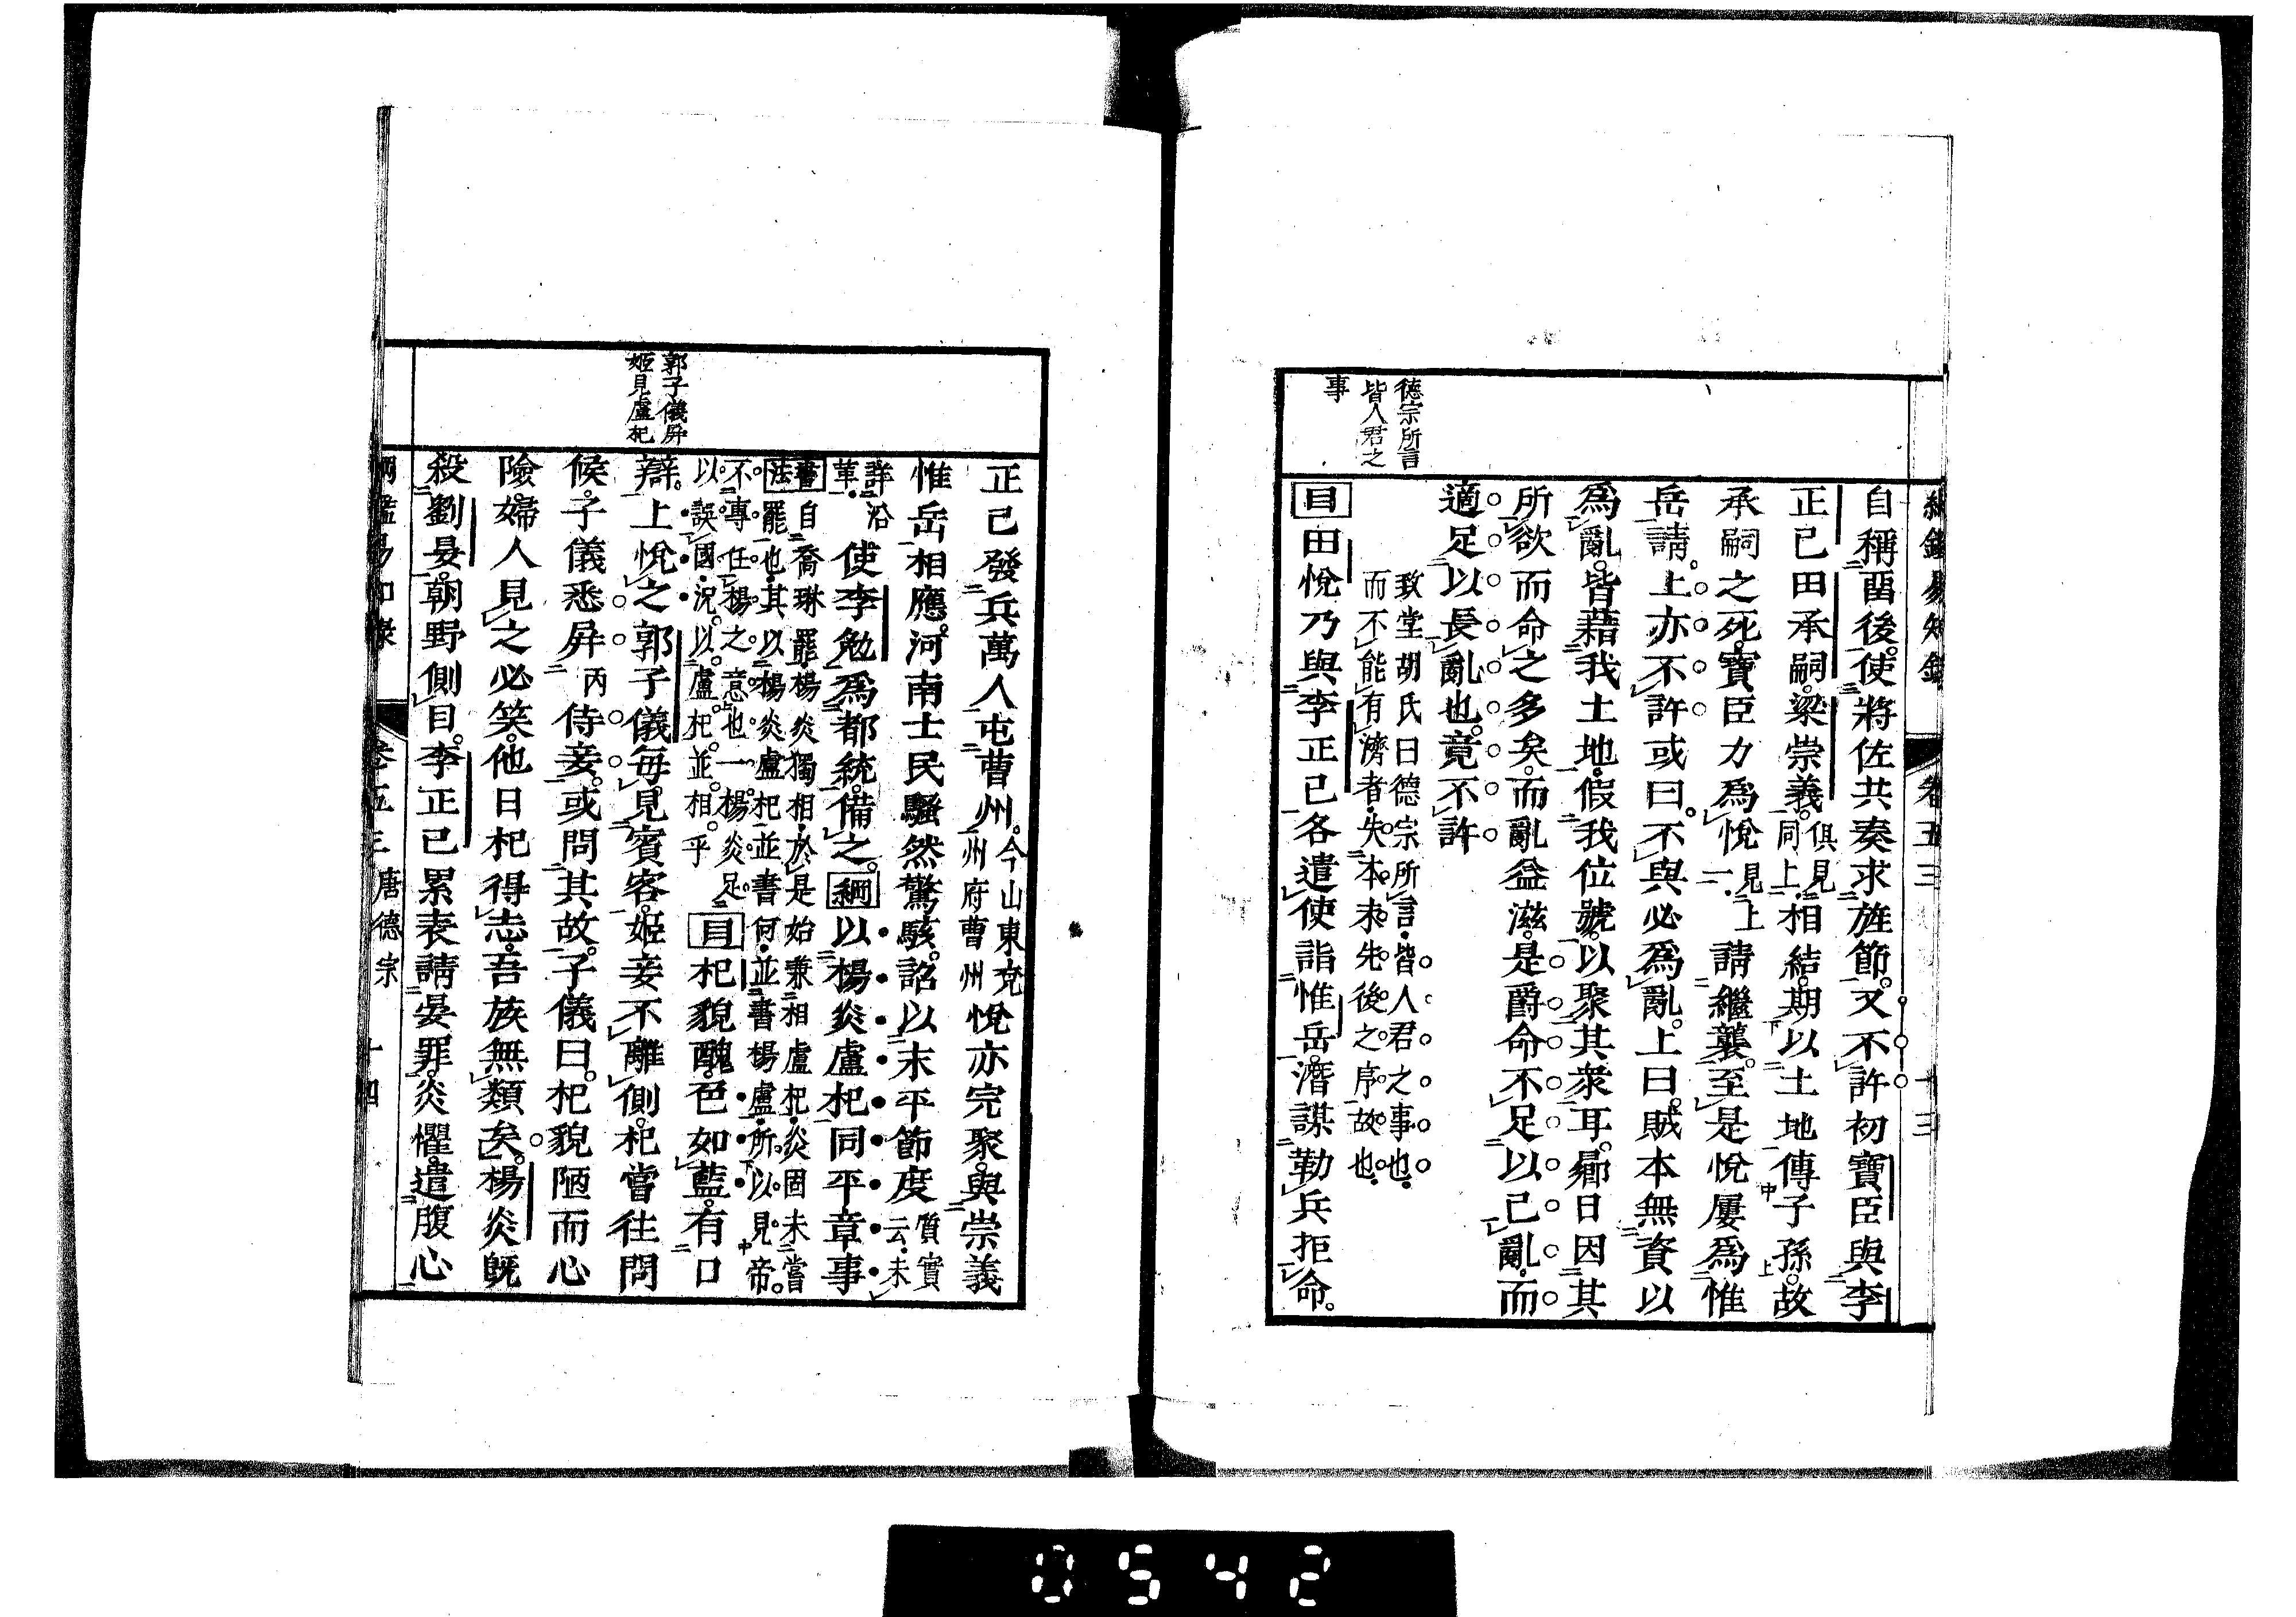 綱鑑易知錄 卷五三 十三
自稱畱後。使將佐共奏求旌節。又不許初寶臣與李
正已田承嗣。梁崇義。俱見同上。相結。期以土地傳子孫。故
承嗣之死。寶臣力爲悅見上一。請繼襲。至是悅屢爲惟
岳請。上亦不許或曰。不與必爲亂。上曰。賊本無資以
爲亂。皆藉我土地。假我位號。以聚其衆耳。曏日因其
所欲而命之多矣。而亂益滋。是爵命不足以已亂。而
適足以長亂也。竟不許
致堂胡氏曰德宗所言皆人君之事也。
而不能有濟者失本末先後之序故也。
目田悅乃與李正已各遣使詣惟岳。潛謀勒兵拒命。
德宗所言
皆人君之
事
正已發兵萬人屯曹州。今山東兖州府曹州悅亦完聚。與崇義
惟岳相應。河南士民騷然驚駭。詔以末平節度質實云未
詳沿革使李勉爲都統。備之。綱以楊炎盧杞同平章事
書法自喬琳罷楊炎獨相於是始兼相盧杞炎固未嘗
罷也其以楊炎盧杞並書何並書楊盧所以見帝。
不專任楊之意也一楊炎足
以誤國況以盧杞並相乎
目杞貌醜。色如藍。有口
辯。上悅之郭子儀每見賓客。姬妾不離側。杞嘗往問
候。子儀悉屛丙侍妾。或問其故。子儀曰。杞貌陋而心
險。婦人見之必笑。他日杞得志。吾族無類矣。楊炎旣
殺劉晏。朝野側目。李正已累表請晏罪。炎懼。遣腹心
郭子儀屛
姬見盧杞
綱鑑易知錄 卷五三 唐德宗 十四
0542